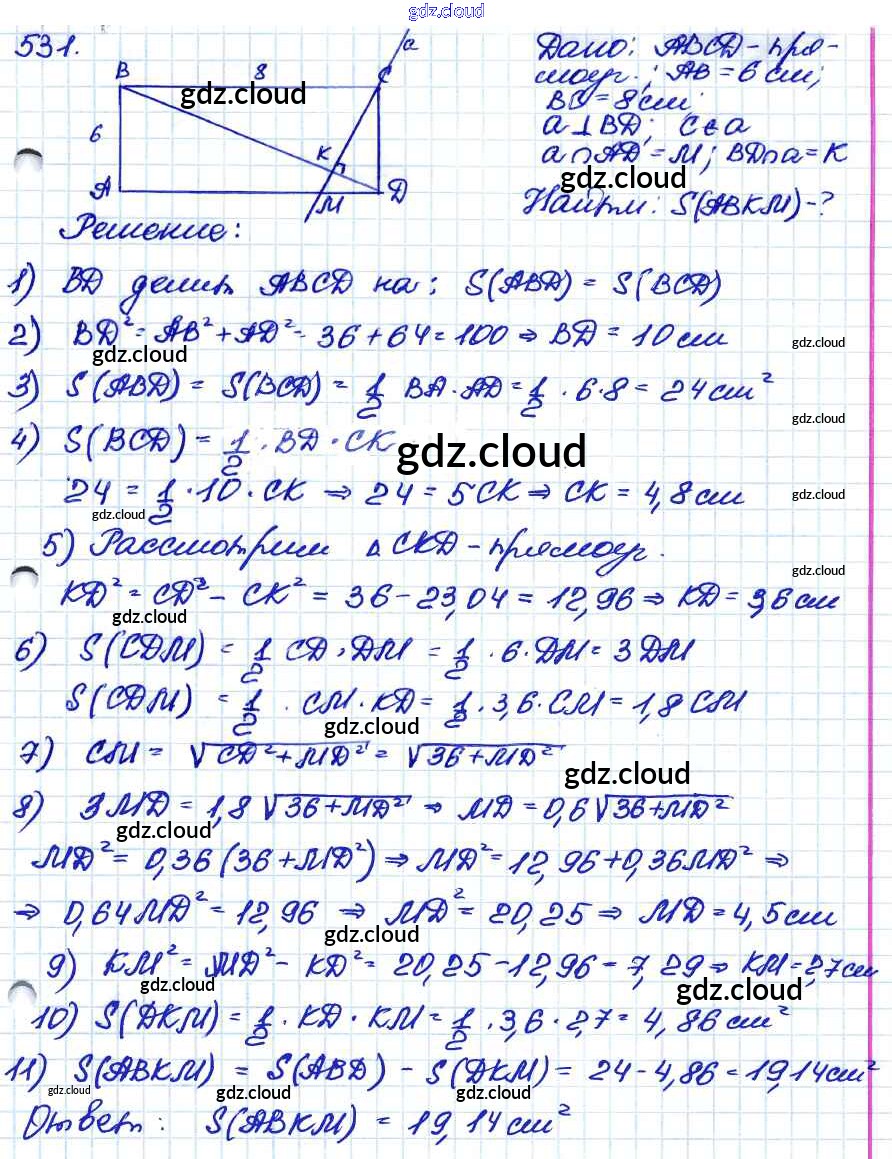 gdz.cloud
531.
a
B 8 C
gdz.cloud
6
K
A M D
Дано: ABCD - пря-
моуг.; AB = 6 см;
BC = 8 см;
a ⊥ BD; C ∈ a
a ∩ AD = M; BD ∩ a = K
gdz.cloud
Найти: S(ABKM) - ?
Решение:
1) BD делит ABCD на: S(ABD) = S(BCD)
2) BD² = AB² + AD² = 36 + 64 = 100 ⇒ BD = 10 см
gdz.cloud
gdz.cloud
3) S(ABD) = S(BCD) = 1/2 BA · AD = 1/2 · 6 · 8 = 24 см²
gdz.cloud
4) S(BCD) = 1/2 · BD · CK
gdz.cloud
24 = 1/2 · 10 · CK ⇒ 24 = 5CK ⇒ CK = 4,8 см
gdz.cloud
gdz.cloud
5) Рассмотрим Δ CKD - прямоуг.
gdz.cloud
KD² = CD² - CK² = 36 - 23,04 = 12,96 ⇒ KD = 3,6 см
gdz.cloud
6) S(CDM) = 1/2 CD · DM = 1/2 · 6 · DM = 3 DM
S(CDM) = 1/2 · CM · KD = 1/2 · 3,6 · CM = 1,8 CM
gdz.cloud
7) CM = √CD² + MD² = √36 + MD²
gdz.cloud
8) 3 MD = 1,8 √36 + MD² ⇒ MD = 0,6 √36 + MD²
gdz.cloud
MD² = 0,36 (36 + MD²) ⇒ MD² = 12,96 + 0,36 MD² ⇒
⇒ 0,64 MD² = 12,96 ⇒ MD² = 20,25 ⇒ MD = 4,5 см
gdz.cloud
9) KM² = MD² - KD² = 20,25 - 12,96 = 7,29 ⇒ KM = 2,7 см
gdz.cloud
gdz.cloud
10) S(DKM) = 1/2 · KD · KM = 1/2 · 3,6 · 2,7 = 4,86 см²
11) S(ABKM) = S(ABD) - S(DKM) = 24 - 4,86 = 19,14 см²
gdz.cloud
gdz.cloud
gdz.cloud
Ответ: S(ABKM) = 19,14 см²